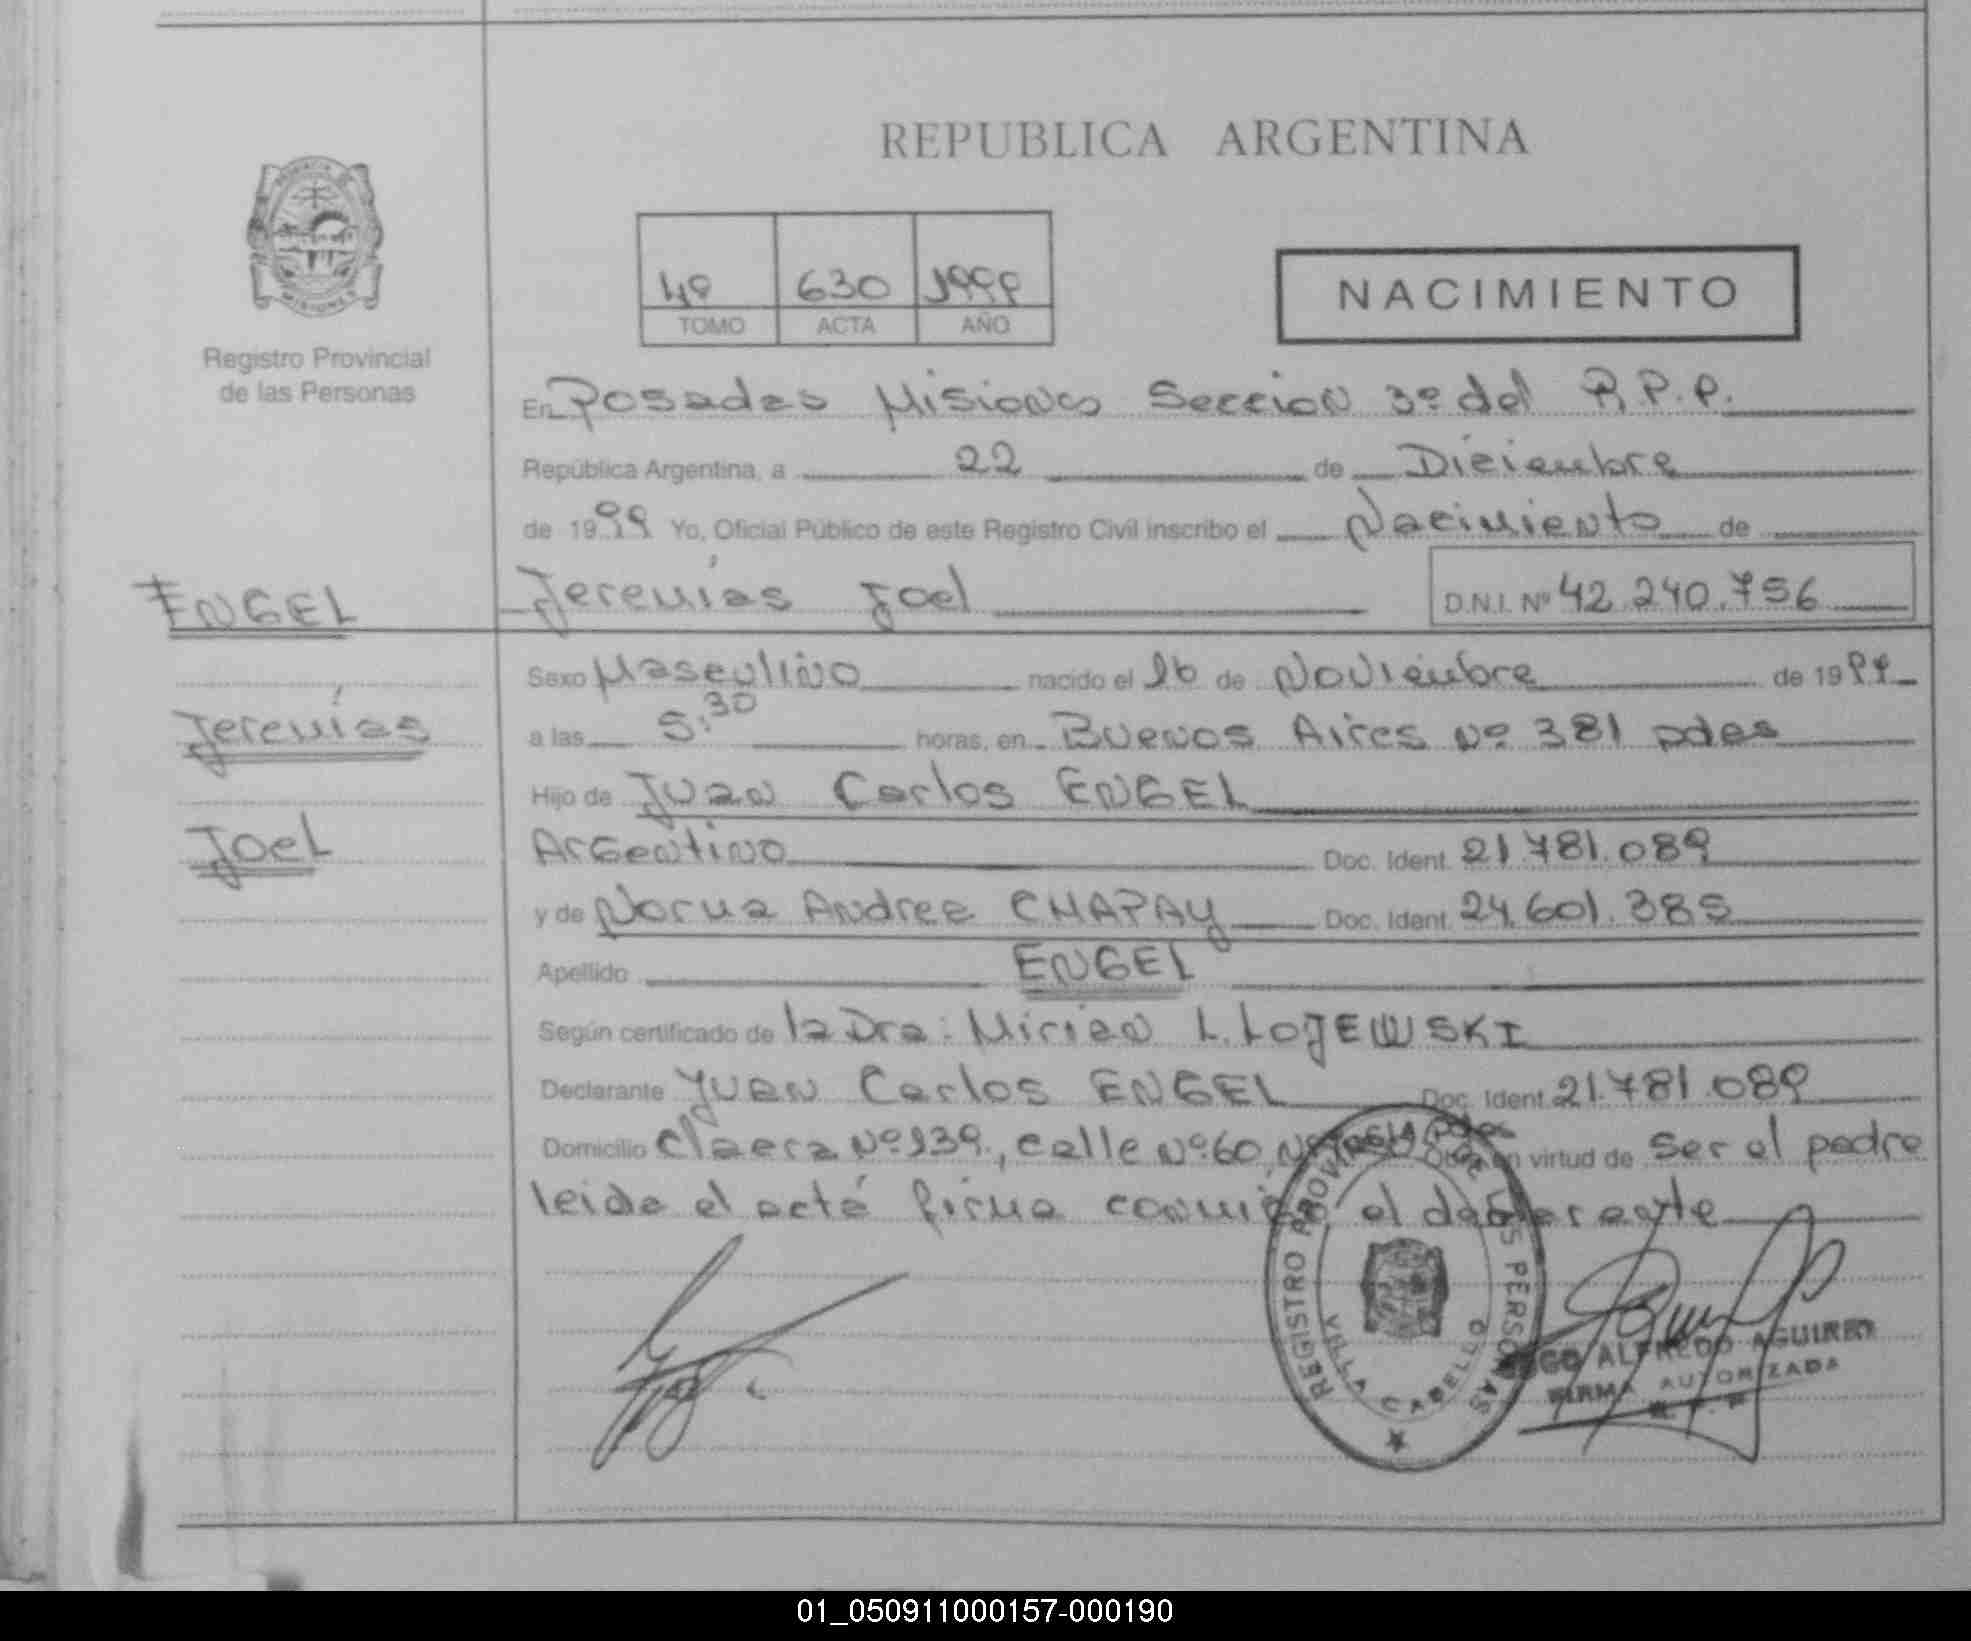 REPUBLICA ARGENTINA
630 1999
TOMO ACTA AÑO
NACIMIENTO
Registro Provincial
de las Personas
En Posadas Misiones Seccion 3º del R.P.P.
República Argentina, a 22 de Diciembre
de 1999 Yo, Oficial Público de este Registro Civil inscribo el Nacimiento de
ENGEL
Jeremías Joel D.N.I. Nº 42.240.756
Sexo Masculino nacido el 16 de Noviembre de 1999
Jeremías
a las 5:30 horas, en Buenos Aires Nº 381 pdas
Hijo de Juan Carlos ENGEL
Joel
Argentino Doc. Ident. 21.781.089
y de Norma Andrea CHAPAY Doc. Ident. 24.601.385
Apellido ENGEL
Según certificado de la Dra: Mirian L. LOJEWSKI
Declarante Juan Carlos ENGEL Doc. Ident. 21.781.089
Domicilio Chacra Nº 139, calle Nº 60 pdas Obra en virtud de ser el padre
leida el acta firma conmigo el declarante
REGISTRO PROVINCIAL DE LAS PERSONAS
VILLA CABELLO
ALFREDO AGUIRRE
FIRMA AUTORIZADA
01_050911000157-000190